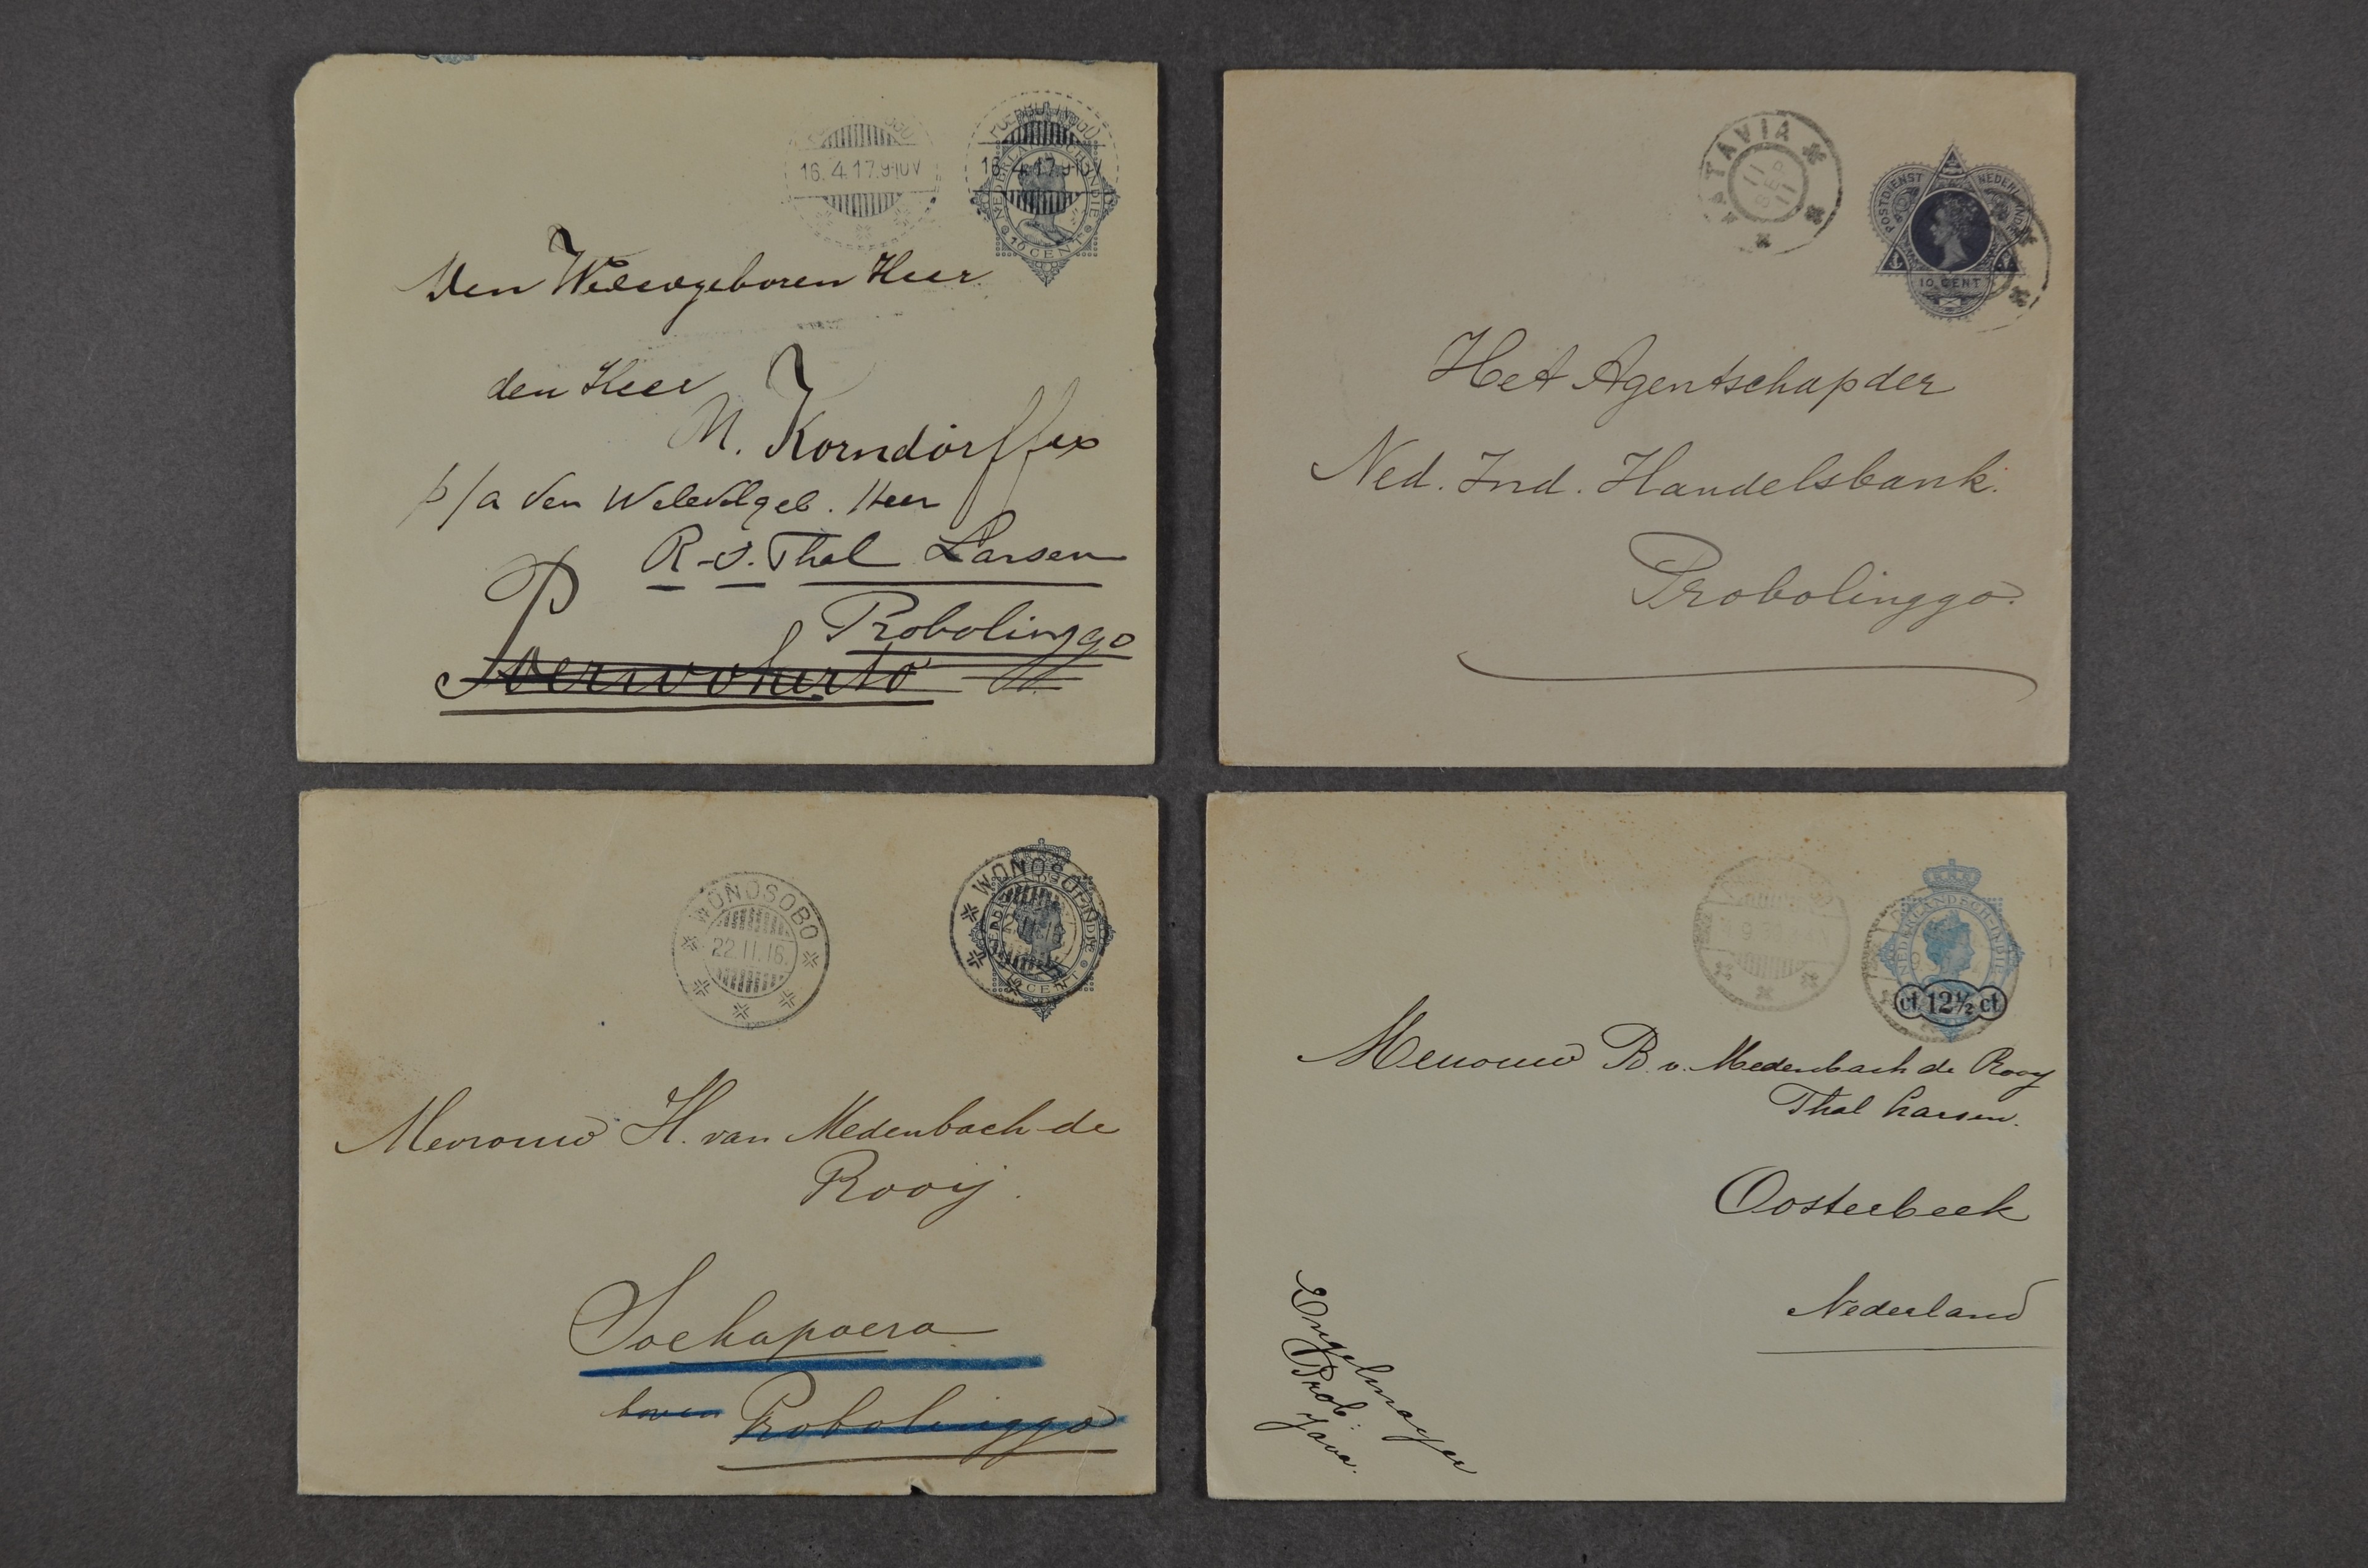 16.4.17.9-10V
16.4.17.9-10V
NEDERLANDSCH-INDIE
10 CENT
Den Weledgeboren Heer
den Heer
M. Korndörffer
p/a den Weledelgeb. Heer
R-S. Thal Larsen
Probolinggo
Poerwokerto
BATAVIA
11
SEP
11
POSTDIENST
NEDERL. INDIE
10 CENT
Het Agentschap der
Ned. Ind. Handelsbank.
Probolinggo.
WONOSOBO
22.11.16.
WONOSOBO
NEDERLANDSCH-INDIE
CENT
Mevrouw H. van Medenbach de
Rooij.
Soekapoera
boven Probolinggo
NEDERLANDSCH-INDIE
ct. 12½ ct.
Mevrouw B. v. Medenbach de Rooy
Thal Larsen.
Oosterbeek
Nederland
Prob:
Java.